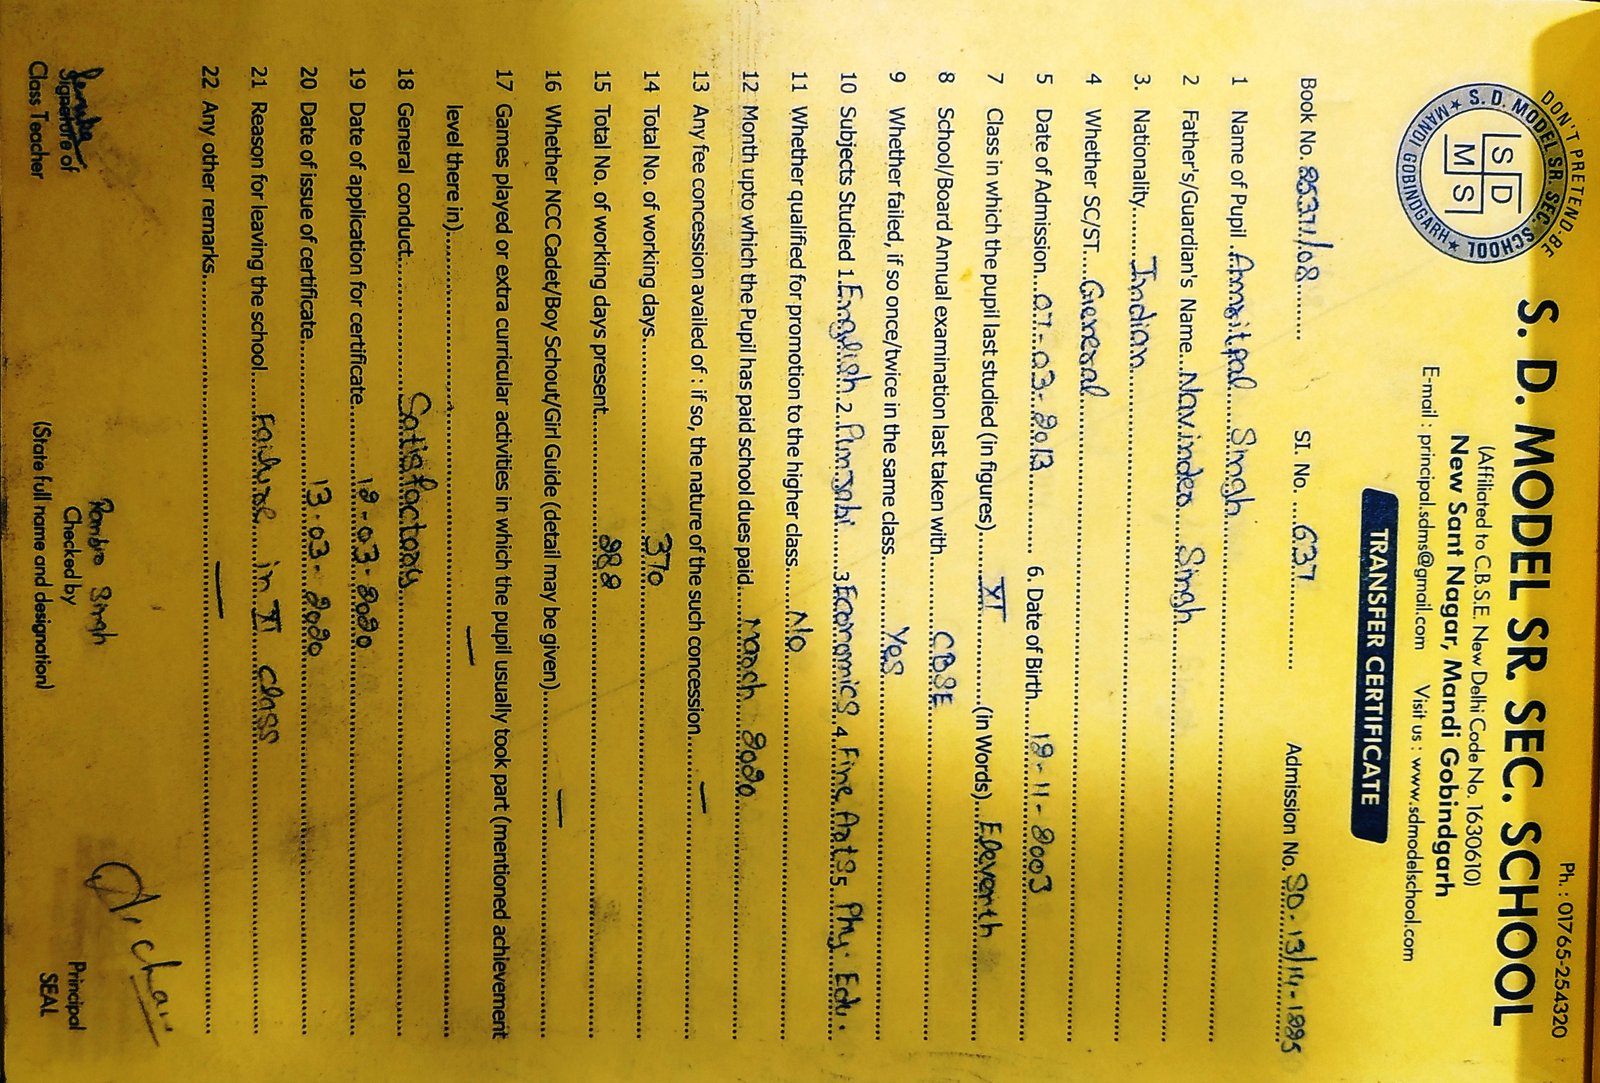 Ph. : 01765-254320
DON'T PRETEND-BE
S. D. MODEL SR. SEC. SCHOOL
★ MANDI GOBINDGARH ★
S D
M S
S. D. MODEL SR. SEC. SCHOOL
(Affiliated to C.B.S.E. New Delhi Code No. 1630610)
New Sant Nagar, Mandi Gobindgarh
E-mail : principal.sdms@gmail.com Visit us : www.sdmodelschool.com
TRANSFER CERTIFICATE
Book No. SI. No. 637 Admission No. SD-13/14-1995
1 Name of Pupil Amritpal Singh
2 Father's/Guardian's Name Navinder Singh
3. Nationality Indian
4 Whether SC/ST General
5 Date of Admission 07-03-2013 6. Date of Birth 12-11-2003
7 Class in which the pupil last studied (in figures) XI (in Words) Eleventh
8 School/Board Annual examination last taken with CBSE
9 Whether failed, if so once/twice in the same class. Yes
10 Subjects Studied 1. English 2. Punjabi 3. Economics 4. Fine Arts 5. Phy. Edu.
11 Whether qualified for promotion to the higher class No
12 Month upto which the Pupil has paid school dues paid March 2020
13 Any fee concession availed of : if so, the nature of the such concession —
14 Total No. of working days 370
15 Total No. of working days present 288
16 Whether NCC Cadet/Boy Schout/Girl Guide (detail may be given) —
17 Games played or extra curricular activities in which the pupil usually took part (mentioned achievement
level there in) —
18 General conduct Satisfactory
19 Date of application for certificate 12-03-2020
20 Date of issue of certificate 13-03-2020
21 Reason for leaving the school Failure in XI class
22 Any other remarks —
Signature of
Class Teacher
Singh
Checked by
(State full name and designation)
Principal
SEAL